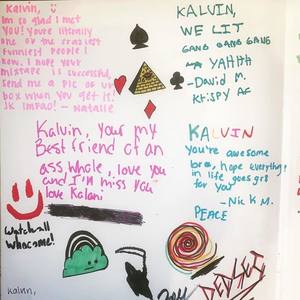 Kalvin, :)
Im so glad I met
YOU! you're literally
one of the craziest
funniest people I
know. I hope your
mixtape is successful,
send me a pic of ur
box when you get it!
Jk lmfao! - Natalie
KALVIN,
WE LIT
GANG GANG GANG
YAHHH
- David M.
KriSPY AF
Kalvin, your my
Best friend of an
ass whole, love you
and I'm miss you
love Kalani
KALVIN
you're awesome
bro, hope everything
in life goes gr8
for you
- Nick M.
PEACE
watchall
whocome!
Kalvin,